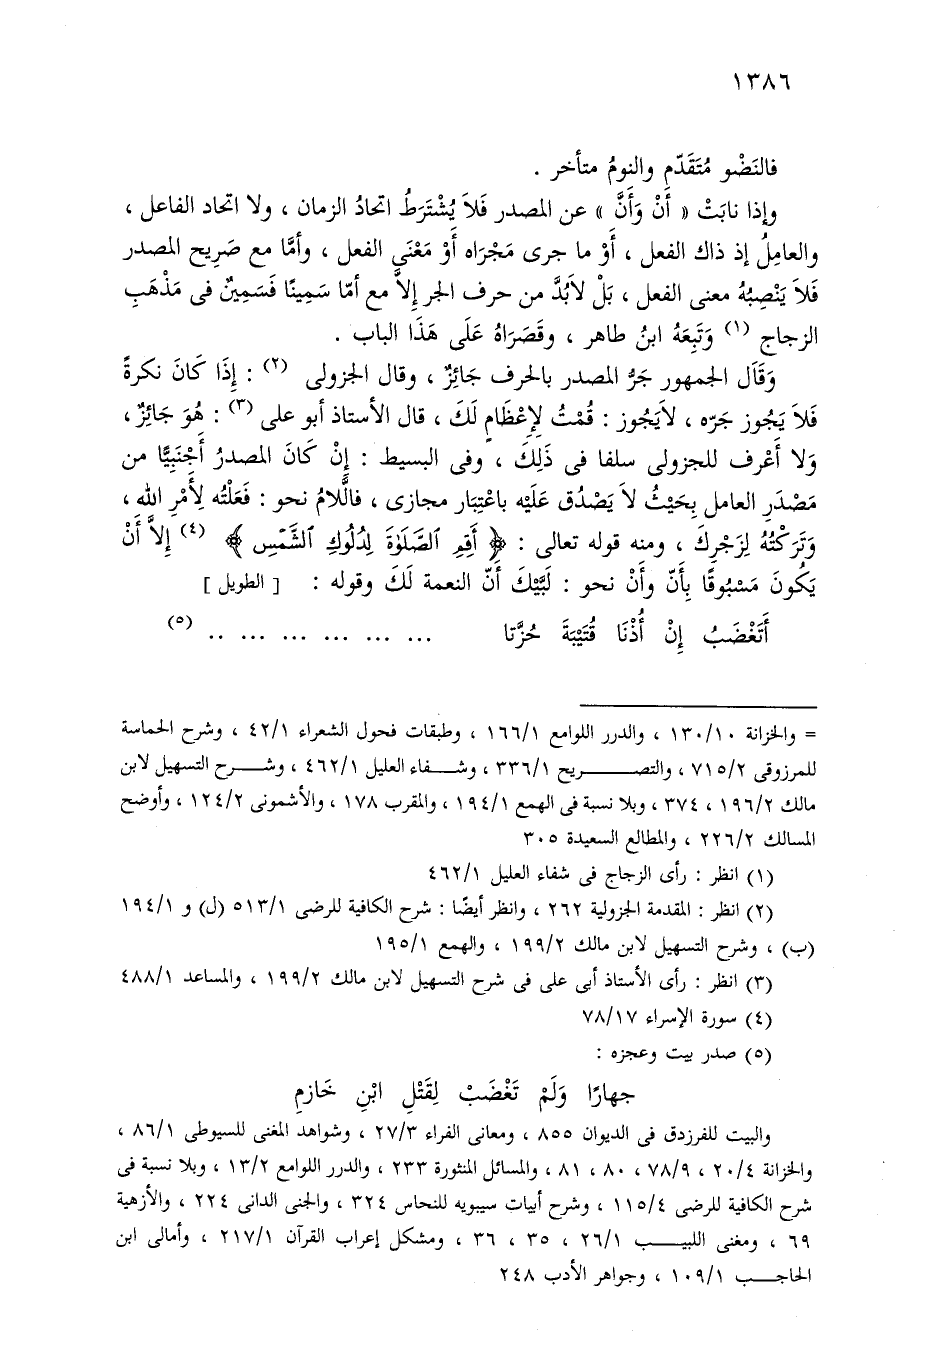 ١٣٨٦
فالنَضْو مُتَقَدّم والنومُ متأخر .
وإذا نابَتْ « أَنْ وَأَنَّ » عن المصدر فَلاَ يُشْتَرَطُ اتحادُ الزمان ، ولا اتحاد الفاعل ،
والعامِلُ إذ ذاك الفعل ، أَوْ ما جرى مَجْرَاه أَوْ مَعْنَى الفعل ، وأمَّا مع صَرِيح المصدر
فَلاَ يَنْصِبُهُ معنى الفعل ، بَلْ لاَبُدَّ من حرف الجر إلاَّ مع أمّا سَمِينًا فَسَمِينٌ فى مَذْهَبِ
الزجاج (١) وَتَبِعَهُ ابنُ طاهر ، وقَصَرَاهُ عَلَى هَذَا الباب .
وَقَاَل الجمهور جَرُّ المصدر بالحرف جَائِزٌ ، وقال الجزولى (٢) : إِذَا كَانَ نكرةً
فَلاَ يَجُوز جَرّه ، لاَيَجُوز : قُمْتُ لِإِعْظَامٍ لَكَ ، قال الأستاذ أبو على (٣) : هُوَ جائِزٌ ،
وَلا أَعْرف للجزولى سلفا فى ذَلِكَ ، وفى البسيط : إِنْ كَانَ المصدرُ أَجْنَبِيًّا من
مَصْدَرِ العامل بِحَيْثُ لاَ يَصْدُق عَلَيْه باعْتِبَار مجازى ، فالَّلامُ نحو : فَعَلْتُه لِأَمْرِ الله ،
وَتَرَكْتُهُ لِزَجْرِكَ ، ومنه قوله تعالى : ﴿ أَقِمِ ٱلصَّلَوٰةَ لِدُلُوكِ ٱلشَّمْسِ ﴾ (٤) إِلاَّ أَنْ
يَكُونَ مَسْبُوقًا بِأَنّ وأَنْ نحو : لَبَّيْكَ أَنّ النعمة لَكَ وقوله : [ الطويل ]
أَتَغْضَبُ إِنْ أُذْنَا قُتَيْبَةَ حُزَّتا ... ... ... ... ... .. (٥)
= والخزانة ١٣٠/١٠ ، والدرر اللوامع ١٦٦/١ ، وطبقات فحول الشعراء ٤٢/١ ، وشرح الحماسة
للمرزوقى ٧١٥/٢ ، والتصـــريح ٣٣٦/١ ، وشـفاء العليل ٤٦٢/١ ، وشـرح التسهيل لابن
مالك ١٩٦/٢ ، ٣٧٤ ، وبلا نسبة فى الهمع ١٩٤/١ ، والمقرب ١٧٨ ، والأشمونى ١٢٤/٢ ، وأوضح
المسالك ٢٢٦/٢ ، والمطالع السعيدة ٣٠٥
(١) انظر : رأى الزجاج فى شفاء العليل ٤٦٢/١
(٢) انظر : المقدمة الجزولية ٢٦٢ ، وانظر أيضًا : شرح الكافية للرضى ٥١٣/١ (ل) و ١٩٤/١
(ب) ، وشرح التسهيل لابن مالك ١٩٩/٢ ، والهمع ١٩٥/١
(٣) انظر : رأى الأستاذ أبى على فى شرح التسهيل لابن مالك ١٩٩/٢ ، والمساعد ٤٨٨/١
(٤) سورة الإسراء ٧٨/١٧
(٥) صدر بيت وعجزه :
جهارًا وَلَمْ تَغْضَبْ لِقَتْلِ ابْنِ خَازمِ
والبيت للفرزدق فى الديوان ٨٥٥ ، ومعانى الفراء ٢٧/٣ ، وشواهد المغنى للسيوطى ٨٦/١ ،
والخزانة ٢٠/٤ ، ٧٨/٩ ، ٨٠ ، ٨١ ، والمسائل المنثورة ٢٣٣ ، والدرر اللوامع ١٣/٢ ، وبلا نسبة فى
شرح الكافية للرضى ١١٥/٤ ، وشرح أبيات سيبويه للنحاس ٣٢٤ ، والجنى الدانى ٢٢٤ ، والأزهية
٦٩ ، ومغنى اللبيـب ٢٦/١ ، ٣٥ ، ٣٦ ، ومشكل إعراب القرآن ٢١٧/١ ، وأمالى ابن
الحاجـب ١٠٩/١ ، وجواهر الأدب ٢٤٨